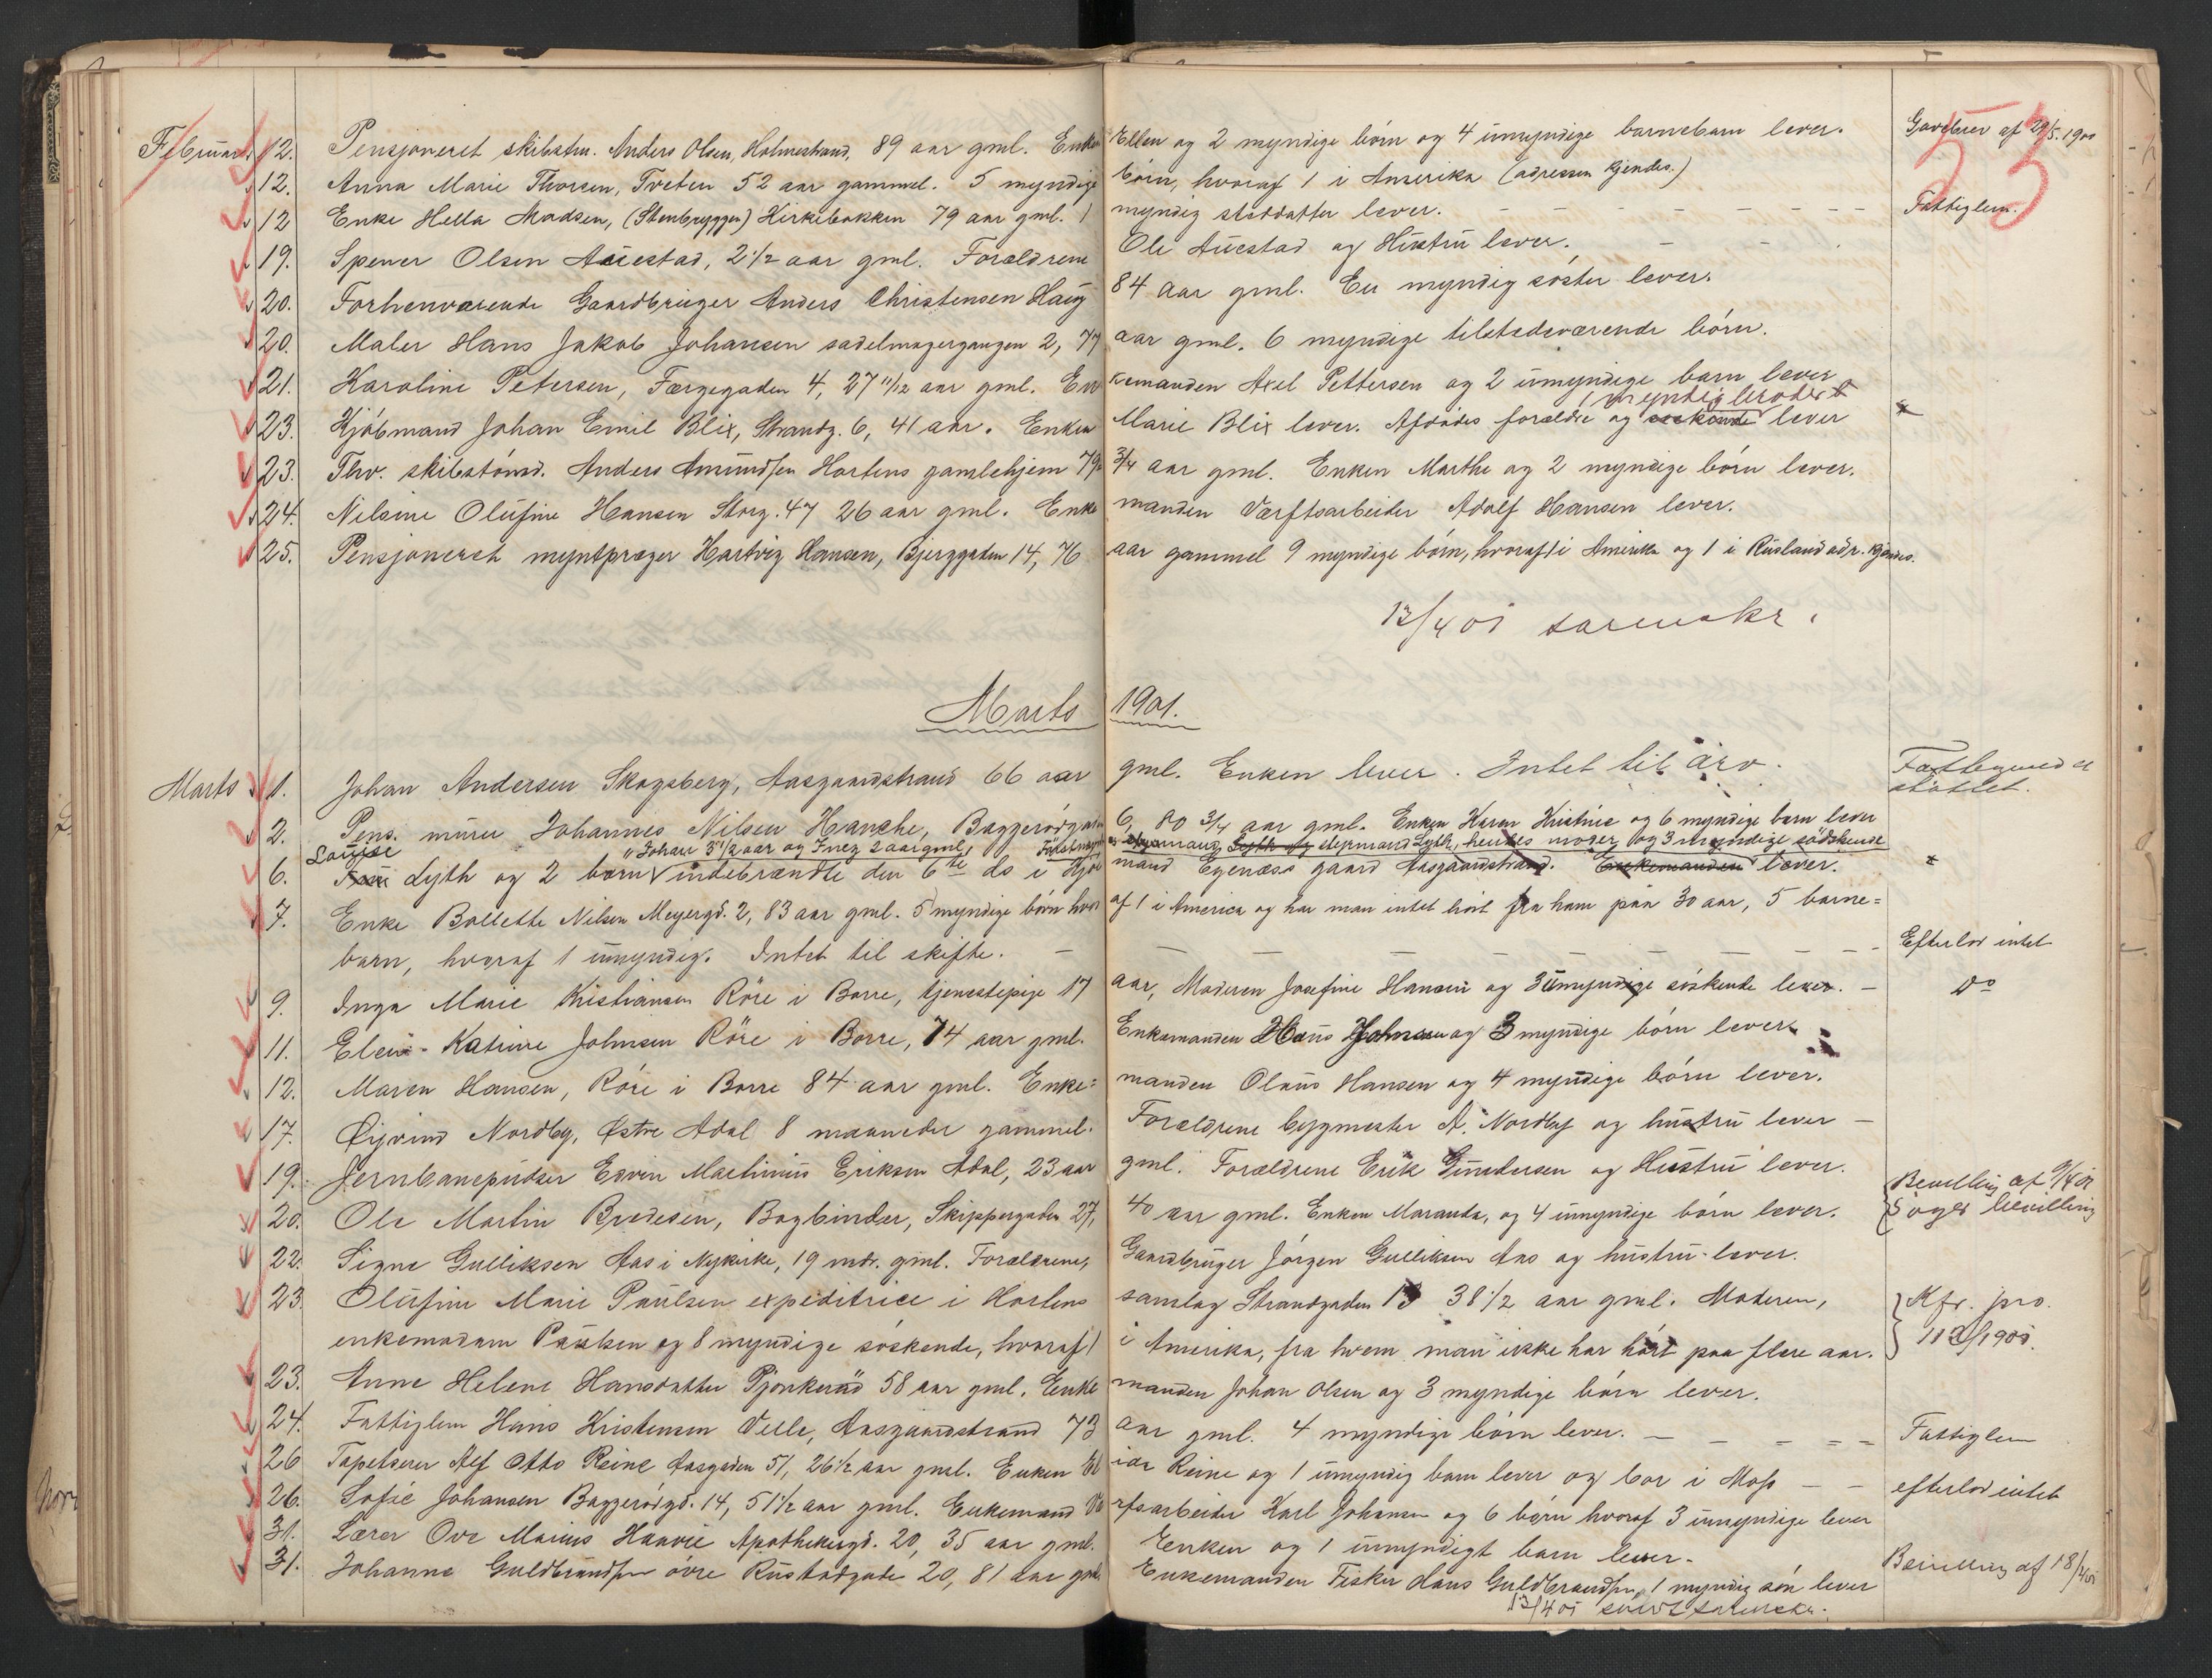 53
Februar 12. Pensjoneret skibstm. Anders Olsen, Holmestrand, 89 aar gml. Enken Ellen og 2 myndige börn og 4 umyndige barnebarn lever. Gavebrev af 29/5. 1900
12. Anna Marie Thorsen, Tveten 52 aar gammel. 5 myndige börn, hvoraf 1 i Amerika (adressen kjendes.)
12 Enke Hella Madsen, (Stenbryggen) Kirkebakken 79 aar gml. 1 myndig steddatter lever. Fattiglem.
19. Spener Olsen Auestad, 2 1/2 aar gml. Forældrene Ole Auestad og Hustru lever.
20. Forhenværende Gaardbruger Anders Christensen Haug 84 aar gml. En myndig söster lever.
20. Maler Hans Jakob Johansen sadelmagergangen 2, 77 aar gml. 6 myndige tilstedeværende börn.
21. Karoline Petersen, Færgegaden 4, 27 11/12 aar gml. Enkemanden Axel Pettersen og 2 umyndige barn lever
1 myndig broder
23. Kjöbmand Johan Emil Blix, Strandg. 6, 41 aar. Enken Marie Blix lever. Afdödes forældre og söskende lever
23. Fhv. skibstömd. Anders Amundsen Hortens gamlehjem 79 3/4 aar gml. Enken Marthe og 2 myndige börn lever.
24. Nilsine Olufine Hansen Storg. 47 26 aar gml. Enkemanden Værftsarbeider Adolf Hansen lever.
25. Pensjoneret myntpræger Hartvig Hansen, Bjerggaden 14, 76 aar gammel 9 myndige börn, hvoraf 1 i Amerika og 1 i Rusland adr. kjendes.
13/4 01
Marts 1901.
Marts 1. Johan Andersen Skogsberg, Aasgaardstrand 66 aar gml. Enken lever. Intet til arv. støttet.
2. Pens. murer Johannes Nilsen Hanche, Baggerödgaden 6, 80 3/4 aar gml. Enken Karen Kristine og 6 myndige barn lever
Louise Johan 3 1/2 aar og Inez 2 aar gml, styrmand Lyth, hendes moder og 3 myndige södskende
6. Lyth og 2 barn indebrændte den 6te ds i Kjömand Egenæss gaard Aasgaardstrand. Enkemanden lever.
7. Enke Bollette Nilsen Meyergd. 2, 83 aar gml. 5 myndige börn hvoraf 1 i America og har man intet hört fra ham paa 30 aar, 5 barne=
barn, hvoraf 1 umyndig. Intet til skifte. Efterlod intet
9. Inga Marie Kristiansen Röre i Borre, tjenestepige 17 aar, Moderen Josefine Hansen og 3 umyndige söskende lever. do
11. Elen Katrine Johnsen Röre i Borre, 74 aar gml. Enkemanden Hans Johnsen og 3 myndige börn lever.
12. Maren Hansen, Röre i Borre 84 aar gml. Enke=manden Olaus Hansen og 4 myndige börn lever.
17. Øjvind Nordby, Østre Adal 8 maaneder gammel. Forældrene bygmester A. Nordby og hustru lever
19. Jernbanepudser Edvin Martinius Eriksen Adal, 23 aar gml. Forældrene Erik Gundersen og Hustru lever.
20. Ole Martin Bredesen, Bogbinder, Skippergaden 27, 40 aar gml. Enken Maranda, og 4 umyndige börn lever. Bevilling af 9/4 01 Söger bevilling
22. Signe Gulliksen Aas i Nykirke, 19 mdr. gml. Forældrene, Gaardbruger Jörgen Gulliksen Aas og hustru lever.
23. Olufine Marie Paulsen expeditrice i Hortens samlag Strandgaden 13 38 1/2 aar gml. Moderen,
enkemadam Paulsen og 8 myndige söskende, hvoraf 1 i Amerika, fra hvem man ikke har hört paa flere aar. Kfr. jro. 112/1901.
23. Anne Helene Hansdatter Pjonkeröd 58 aar gml. Enkemanden Johan Olsen og 3 myndige börn lever.
24. Fattiglem Hans Kristensen Velle, Aasgaardstrand 73 aar gml. 4 myndige börn lever. Fattiglem
26 Tapetserer Alf Otto Reine Aasgaden 51, 26 1/2 aar gml. Enken Reine og 1 umyndig barn lever og bor i Moss efterlod intet
26. Sofie Johansen Baggerödgd. 14, 51 1/2 aar gml. Enkemand Værfsarbeider Karl Johansen og 6 börn hvoraf 3 umyndige lever
31. Lærer Ove Marius Haavie Apothekergd. 20, 35 aar gml. Enken og 1 umyndigt barn lever. Bevilling af 18/4 01
31. Johanne Guldbrandsen övre Rustadgade 20, 81 aar gml. Enkemanden Fisker Hans Guldbrandsen, 1 myndig sön lever
13/4 01